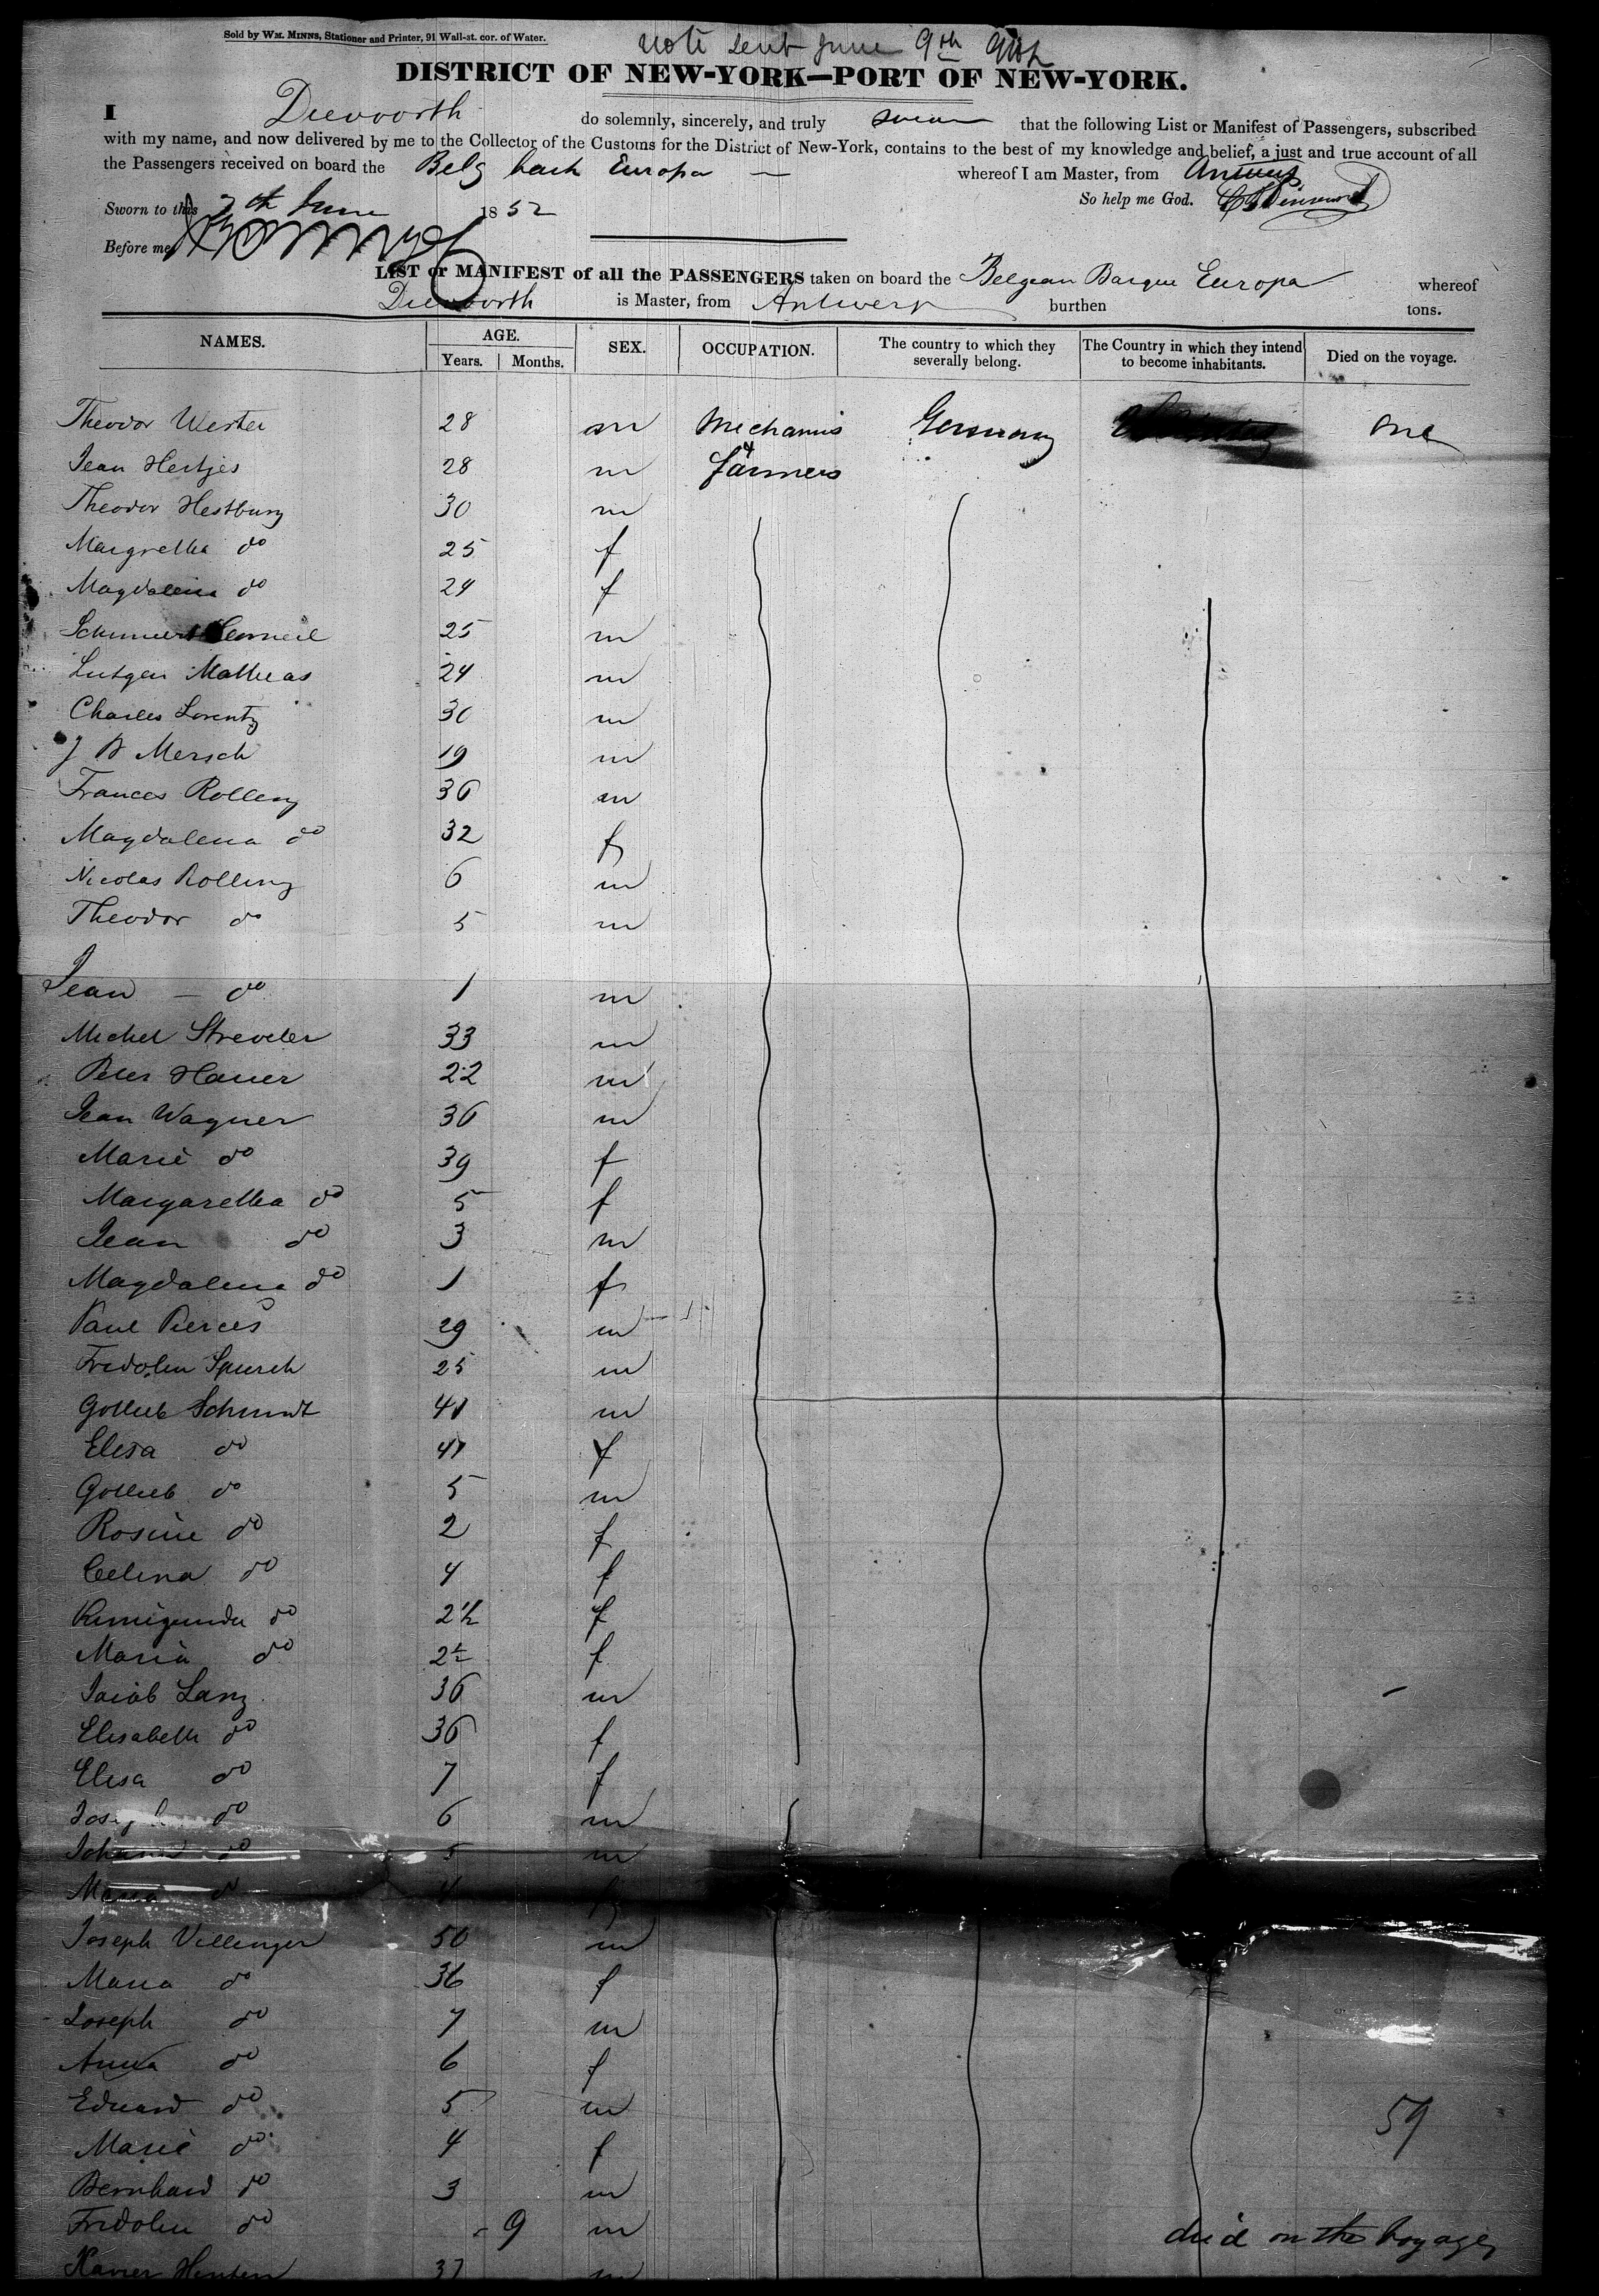 Sold by WM. MINNS, Stationer and Printer, 91 Wall-st. cor. of Water.
note sent June 9th
DISTRICT OF NEW-YORK—PORT OF NEW-YORK.
I do solemnly, sincerely, and truly swear that the following List or Manifest of Passengers, subscribed
with my name, and now delivered by me to the Collector of the Customs for the District of New-York, contains to the best of my knowledge and belief, a just and true account of all
the Passengers received on board the Belg bark Europa — whereof I am Master, from Antwerp
Sworn to this 7th June 1852 So help me God.
Before me
LIST or MANIFEST of all the PASSENGERS taken on board the Belgean Barque Europa whereof
is Master, from Antwerp burthen tons.
NAMES. AGE. SEX. OCCUPATION. The country to which they severally belong. The Country in which they intend to become inhabitants. Died on the voyage.
Years. Months.
Theodor Wester 28 m Mechanics Germany one
Jean Hertjes 28 m & farmers
Theodor Hestburg 30 m
Margretha do 25 f
Magdalena do 24 f
25 m
Lutgen Mathias 24 m
Charles Lorentz 30 m
J B Mersch 19 m
Frances Rolling 36 m
Magdalena do 32 f
Nicolas Rolling 6 m
Theodor do 5 m
Jean — do 1 m
Michel Streveler 33 m
Peter Hauer 22 m
Jean Wagner 36 m
Marie do 39 f
Margaretha do 5 f
Jean do 3 m
Magdalena do 1 f
Paul Pierces 29 m
Fridolin Spursch 25 m
Gottlieb Schmidt 41 m
Elisa do 41 f
Gottlieb do 5 m
Rosine do 2 f
Celina do 4 f
Kunigunda do 2½ f
Maria do 2½ f
Jacob Lanz 36 m
Elisabeth do 36 f
Elisa do 7 f
Joseph do 6 m
Johann do 5 m
Maria do 4 f
Joseph Villinger 50 m
Maria do 36 f
Joseph do 7 m
Anna do 6 f
Eduard do 5 m 59
Marie do 4 f
Bernhard do 3 m
Fridolin do - 9 m died on the voyage
Xavier 37 m